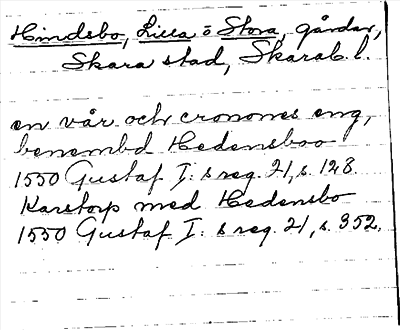 Hindsbo, Lilla o Stora, gårdar,
Skara stad, Skarab. l.
en vår och cronones eng,
benembd Hedensboo
1550 Gustaf I: s reg. 21, s. 128.
Karstorp med Hedensbo
1550 Gustaf I: s reg. 21, s. 352.